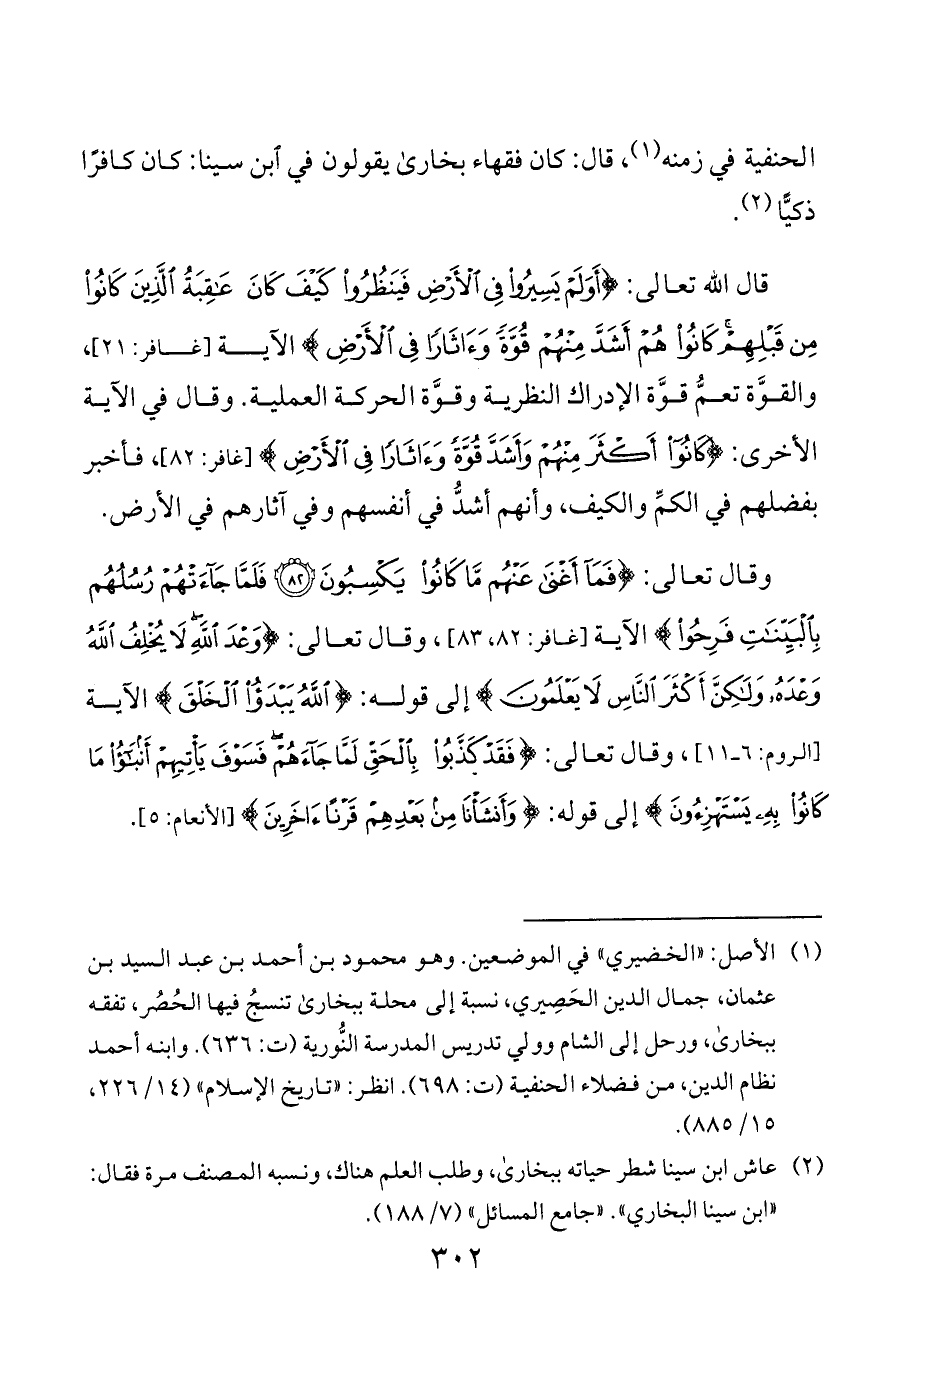 الحنفية في زمنه(١)، قال: كان فقهاء بخارىٰ يقولون في ٱبن سينا: كان كافرًا
ذكيًّا (٢).
قال الله تعالى: ﴿أَوَلَمْ يَسِيرُوا۟ فِى ٱلْأَرْضِ فَيَنظُرُوا۟ كَيْفَ كَانَ عَـٰقِبَةُ ٱلَّذِينَ كَانُوا۟
مِن قَبْلِهِمْ ۚ كَانُوا۟ هُمْ أَشَدَّ مِنْهُمْ قُوَّةً وَءَاثَارًا فِى ٱلْأَرْضِ﴾ الآيـــة [غـــافر: ٢١]،
والقوَّة تعمُّ قوَّة الإدراك النظرية وقوَّة الحركة العملية. وقال في الآية
الأخرى: ﴿كَانُوٓا۟ أَكْثَرَ مِنْهُمْ وَأَشَدَّ قُوَّةً وَءَاثَارًا فِى ٱلْأَرْضِ﴾ [غافر: ٨٢]، فأخبر
بفضلهم في الكمِّ والكيف، وأنهم أشدُّ في أنفسهم وفي آثارهم في الأرض.
وقال تعالى: ﴿فَمَآ أَغْنَىٰ عَنْهُم مَّا كَانُوا۟ يَكْسِبُونَ ٨٢ فَلَمَّا جَآءَتْهُمْ رُسُلُهُم
بِٱلْبَيِّنَـٰتِ فَرِحُوا۟﴾ الآية [غافر: ٨٢، ٨٣]، وقال تعالى: ﴿وَعْدَ ٱللَّهِ ۖ لَا يُخْلِفُ ٱللَّهُ
وَعْدَهُۥ وَلَـٰكِنَّ أَكْثَرَ ٱلنَّاسِ لَا يَعْلَمُونَ﴾ إلى قولـه: ﴿ٱللَّهُ يَبْدَؤُا۟ ٱلْخَلْقَ﴾ الآيـة
[الروم: ٦ـ١١]، وقال تعالى: ﴿فَقَدْ كَذَّبُوا۟ بِٱلْحَقِّ لَمَّا جَآءَهُمْ ۖ فَسَوْفَ يَأْتِيهِمْ أَنۢبَـٰٓؤُا۟ مَا
كَانُوا۟ بِهِۦ يَسْتَهْزِءُونَ﴾ إلى قوله: ﴿وَأَنشَأْنَا مِنۢ بَعْدِهِمْ قَرْنًا ءَاخَرِينَ﴾ [الأنعام: ٥].
(١) الأصل: «الخضيري» في الموضعين. وهو محمود بن أحمد بن عبد السيد بن
عثمان، جمال الدين الحَصِيري، نسبة إلى محلة ببخارىٰ تنسجُ فيها الحُصُر، تفقه
ببخارىٰ، ورحل إلى الشام وولي تدريس المدرسة النُّورية (ت: ٦٣٦). وابنه أحمد
نظام الدين، من فضلاء الحنفية (ت: ٦٩٨). انظر: «تاريخ الإسلام» (١٤/ ٢٢٦،
١٥/ ٨٨٥).
(٢) عاش ابن سينا شطر حياته ببخارىٰ، وطلب العلم هناك، ونسبه المصنف مرة فقال:
«ابن سينا البخاري». «جامع المسائل» (٧/ ١٨٨).
٣٠٢